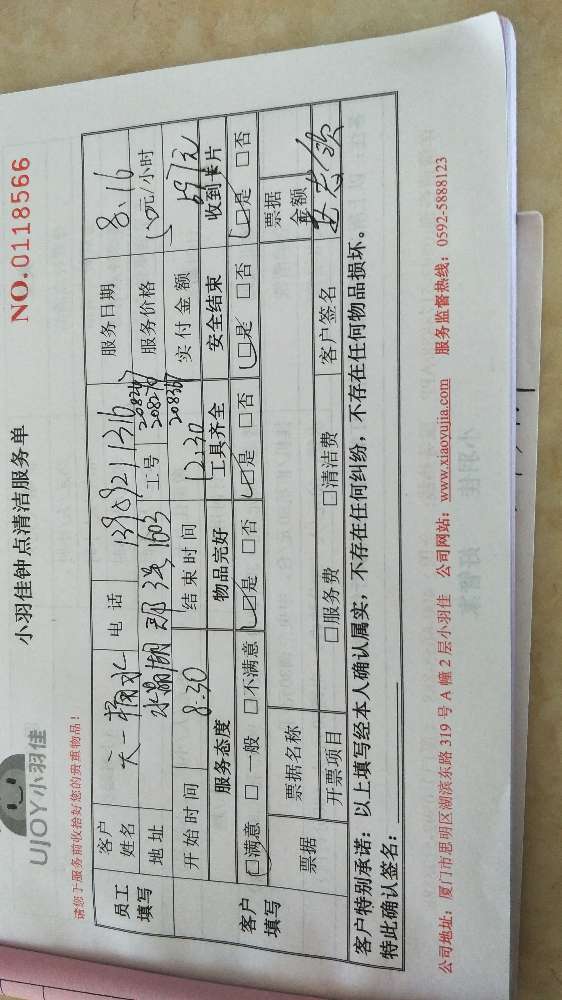 UJOY小羽佳
小羽佳钟点清洁服务单
NO.0118566
请您于服务前收拾好您的贵重物品!
员工填写 客户姓名 电话 服务日期 8.16
地址 水晶湖郡 1603 工号 208247 服务价格 50元/小时
开始时间 8:30 结束时间 12:30 208267 实付金额
客户填写 服务态度 物品完好 工具齐全 安全结束 收到卡片
□满意 □一般 □不满意 □是 □否 □是 □否 □是 □否 □是 □否
票据 票据名称 票据金额
开票项目 □服务费 □清洁费 客户签名
客户特别承诺:以上填写经本人确认属实,不存在任何纠纷,不存在任何物品损坏。
特此确认签名:
公司地址:厦门市思明区湖滨东路 319 号 A 幢 2 层小羽佳 公司网站:www.xiaoyujia.com 服务监督热线:0592-5888123